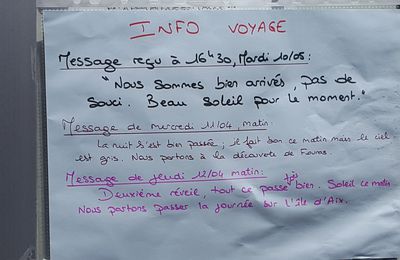 INFO VOYAGE
Message reçu à 16h30, Mardi 10/05:
"Nous sommes bien arrivés, pas de
souci. Beau soleil pour le moment."
Message de mercredi 11/04, matin:
La nuit s'est bien passée; il fait bon ce matin mais le ciel
est gris. Nous partons à la découverte de Fouras.
Message de jeudi 12/04 matin:
Deuxième réveil, tout ce passe très bien. Soleil ce matin.
Nous partons passer la journée sur l'île d'Aix.